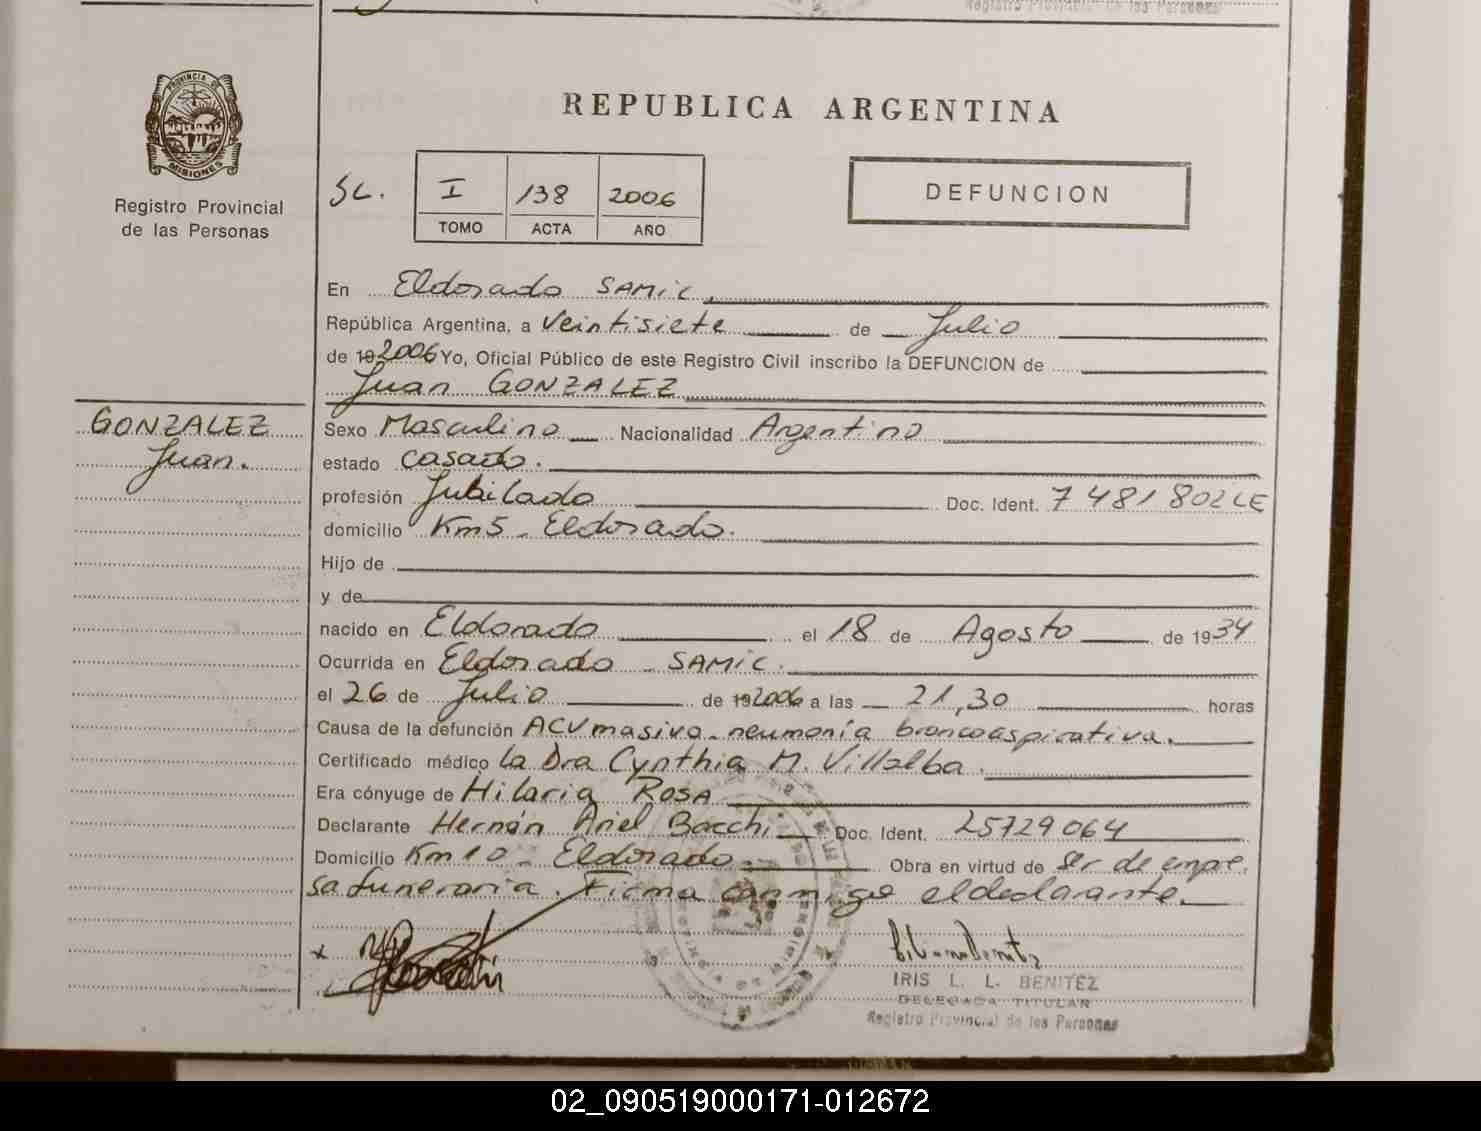 Registro Provincial de las Personas
PROVINCIA DE
MISIONES
Registro Provincial
de las Personas
REPUBLICA ARGENTINA
SC. I 138 2006
TOMO ACTA AÑO
DEFUNCION
En Eldorado SAMIC,
República Argentina, a Veintisiete de Julio
de 192006 Yo, Oficial Público de este Registro Civil inscribo la DEFUNCION de
Juan GONZALEZ
GONZALEZ
Juan.
Sexo Masculino Nacionalidad Argentino
estado casado.
profesión Jubilado Doc. Ident. 7481802 LE
domicilio Km5 - Eldorado.
Hijo de
y de
nacido en Eldorado el 18 de Agosto de 1934
Ocurrida en Eldorado - SAMIC.
el 26 de Julio de 192006 a las 21,30 horas
Causa de la defunción ACV masivo - neumonía broncoaspirativa.
Certificado médico la Dra Cynthia M. Villalba.
Era cónyuge de Hilaria ROSA
Declarante Hernán Ariel Bacchi Doc. Ident. 25729064
Domicilio Km10 - Eldorado. Obra en virtud de ser de empre.
sa funeraria. Firma conmigo el declarante.
IRIS L. L. BENITEZ
DELEGADA TITULAR
Registro Provincial de las Personas
02_090519000171-012672